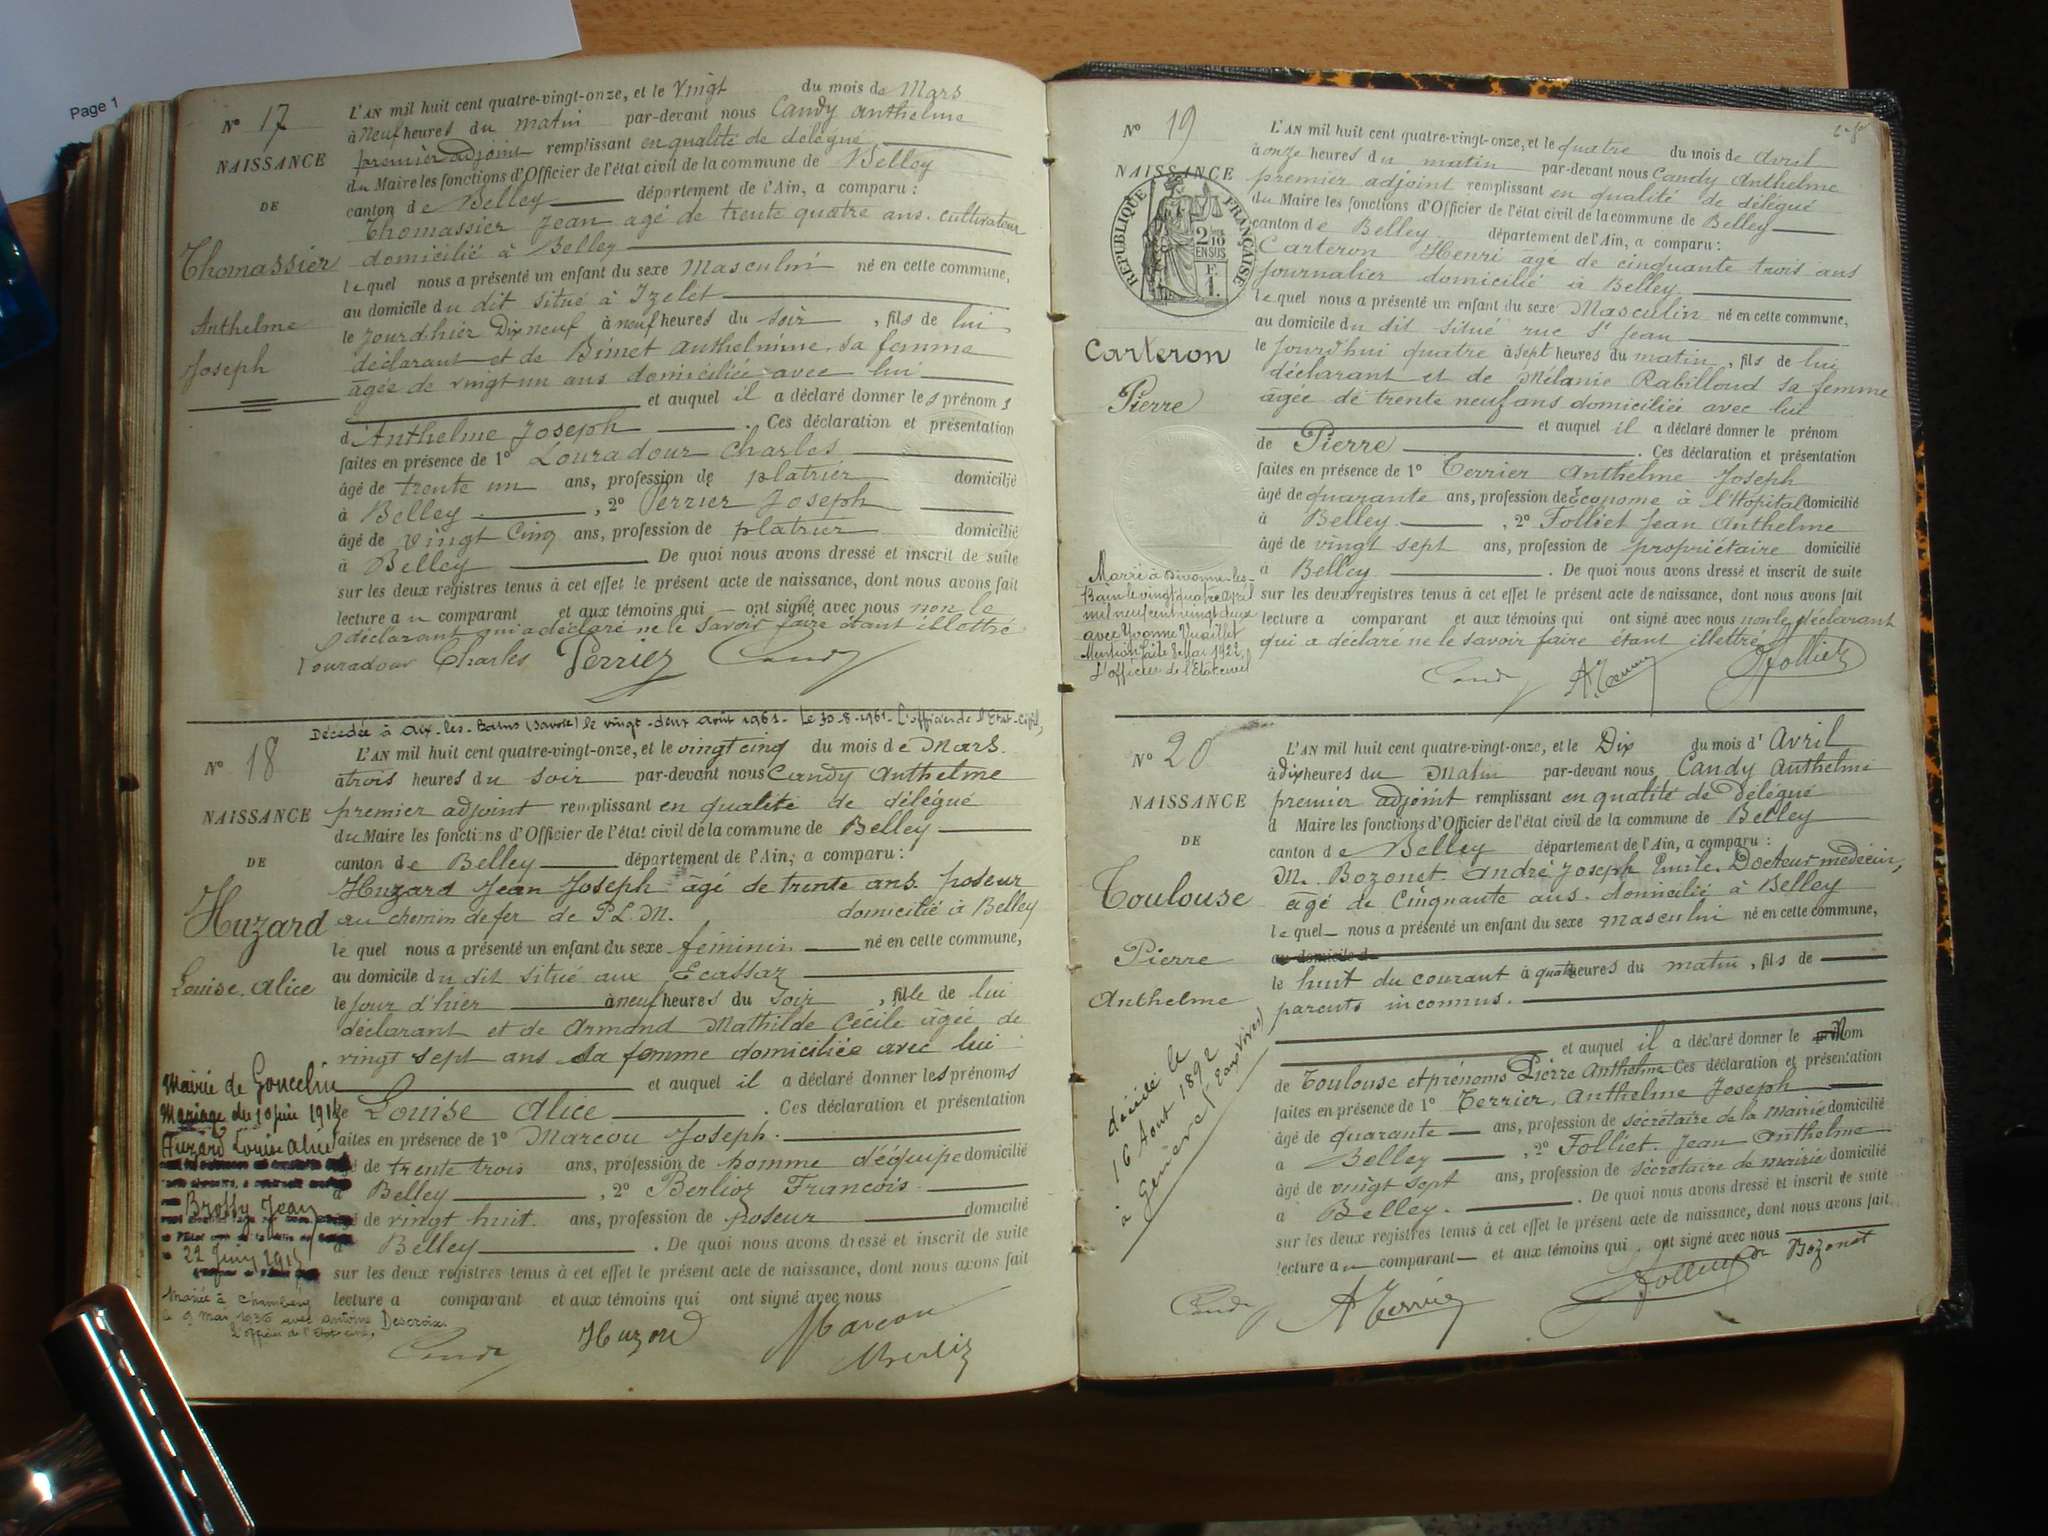 Page 1
N° 17
NAISSANCE
DE
Thomassier
Anthelme
Joseph
L'AN mil huit cent quatre-vingt-onze, et le Vingt du mois de Mars
à neuf heures du matin par-devant nous Candy Anthelme
premier adjoint remplissant en qualité de délégué
du Maire les fonctions d'Officier de l'état civil de la commune de Belley
canton de Belley département de l'Ain, a comparu :
Thomassier Jean agé de trente quatre ans. cultivateur
domicilié à Belley
lequel nous a présenté un enfant du sexe Masculin né en cette commune,
au domicile du dit situé à Izelet
le jourdhier Dix neuf à neuf heures du soir, fils de lui
déclarant et de Bimet Anthelmine, sa femme
âgée de vingt un ans domiciliée avec lui
et auquel il a déclaré donner les prénoms
d'Anthelme Joseph. Ces déclaration et présentation
faites en présence de 1° Louradour Charles
âgé de trente un ans, profession de platrier domicilié
à Belley, 2° Perrier Joseph
âgé de vingt cinq ans, profession de platrier domicilié
à Belley. De quoi nous avons dressé et inscrit de suite
sur les deux registres tenus à cet effet le présent acte de naissance, dont nous avons fait
lecture au comparant et aux témoins qui ont signé avec nous non le
déclarant qui a déclaré ne le savoir faire étant illettré
Louradour Charles Perrier Candy
Décédée à Aix-les-Bains (Savoie) le vingt-deux août 1961. Le 30-8-1961. L'officier de l'Etat-Civil,
N° 18
NAISSANCE
DE
Huzard
Louise, Alice
L'AN mil huit cent quatre-vingt-onze, et le vingt cinq du mois de Mars
à trois heures du soir par-devant nous Candy Anthelme
premier adjoint remplissant en qualité de délégué
du Maire les fonctions d'Officier de l'état civil de la commune de Belley
canton de Belley département de l'Ain, a comparu :
Huzard Jean Joseph âgé de trente ans. poseur
au chemin de fer de P.L.M. domicilié à Belley
lequel nous a présenté un enfant du sexe féminin né en cette commune,
au domicile du dit situé aux Ecassaz
le jour d'hier à neuf heures du soir, fille de lui
déclarant et de Armand Mathilde Cécile âgée de
vingt sept ans sa femme domiciliée avec lui
et auquel il a déclaré donner les prénoms
de Louise Alice. Ces déclaration et présentation
faites en présence de 1° Marcou Joseph.
âgé de trente trois ans, profession de homme d'équipe domicilié
à Belley, 2° Berlioz François.
âgé de vingt huit ans, profession de poseur domicilié
à Belley. De quoi nous avons dressé et inscrit de suite
sur les deux registres tenus à cet effet le présent acte de naissance, dont nous avons fait
lecture a comparant et aux témoins qui ont signé avec nous
Mairie de Goncelin
Mariage du 10 juin
Huzard Louise Alice
Brossy Jean
22 juin
Mariée à Chambéry
le 9 Mai 1936 avec Antoine Descroix.
L'officier de l'Etat civil,
Candy Huzard Marcou
Berlioz
N° 19
NAISSANCE
RÉPUBLIQUE FRANÇAISE
2/10
EN SUS
Carteron
Pierre
L'AN mil huit cent quatre-vingt-onze, et le quatre du mois de Avril
à onze heures du matin par-devant nous Candy Anthelme
premier adjoint remplissant en qualité de délégué
du Maire les fonctions d'Officier de l'état civil de la commune de Belley
canton de Belley département de l'Ain, a comparu :
Carteron Henri âgé de cinquante trois ans
journalier domicilié à Belley
lequel nous a présenté un enfant du sexe Masculin né en cette commune,
au domicile du dit situé rue St Jean
le jourd'hui quatre à sept heures du matin, fils de lui
déclarant et de Mélanie Rabilloud sa femme
âgée de trente neuf ans domiciliée avec lui
et auquel il a déclaré donner le prénom
de Pierre. Ces déclaration et présentation
faites en présence de 1° Terrier Anthelme Joseph
âgé de quarante ans, profession de Econome à l'Hopital domicilié
à Belley, 2° Folliet Jean Anthelme
âgé de vingt sept ans, profession de propriétaire domicilié
à Belley. De quoi nous avons dressé et inscrit de suite
sur les deux registres tenus à cet effet le présent acte de naissance, dont nous avons fait
lecture a comparant et aux témoins qui ont signé avec nous non le déclarant
qui a déclaré ne le savoir faire étant illettré
Marié à Divonne-les-
Bains le vingt quatre avril
mil neuf cent vingt deux
avec Yvonne Vuaillet
Mention faite 2 Mai 1922.
L'officier de l'Etat civil
Candy A Terrier JFolliet
N° 20
NAISSANCE
DE
Toulouse
Pierre
Anthelme
L'AN mil huit cent quatre-vingt-onze, et le Dix du mois d'Avril
à dix heures du Matin par-devant nous Candy Anthelme
premier adjoint remplissant en qualité de délégué
d Maire les fonctions d'Officier de l'état civil de la commune de Belley
canton de Belley département de l'Ain, a comparu :
M. Bozonet André Joseph Emile. Docteur médecin,
âgé de Cinquante ans. domicilié à Belley
lequel nous a présenté un enfant du sexe masculin né en cette commune,
au domicile d
le huit du courant à quatre heures du matin, fils de
parents inconnus.
et auquel il a déclaré donner le Nom
de Toulouse et prénoms Pierre Anthelme Ces déclaration et présentation
faites en présence de 1° Terrier, Anthelme Joseph
âgé de quarante ans, profession de secrétaire de la mairie domicilié
à Belley, 2° Folliet. Jean Anthelme
âgé de vingt sept ans, profession de secrétaire de mairie domicilié
à Belley. De quoi nous avons dressé et inscrit de suite
sur les deux registres tenus à cet effet le présent acte de naissance, dont nous avons fait
lecture au comparant et aux témoins qui ont signé avec nous
décédé le
16 Aout 1892
à Genève (Eaux Vives)
Candy A Terrier JFolliet Dr Bozonet